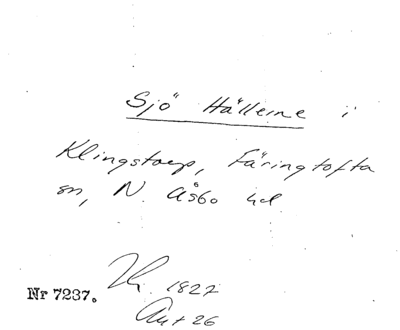 Sjö Hälleine i
Klingstorp, Färingtofta
sn, N. Åsbo hd
Nr 7237. 1827
Ant 26